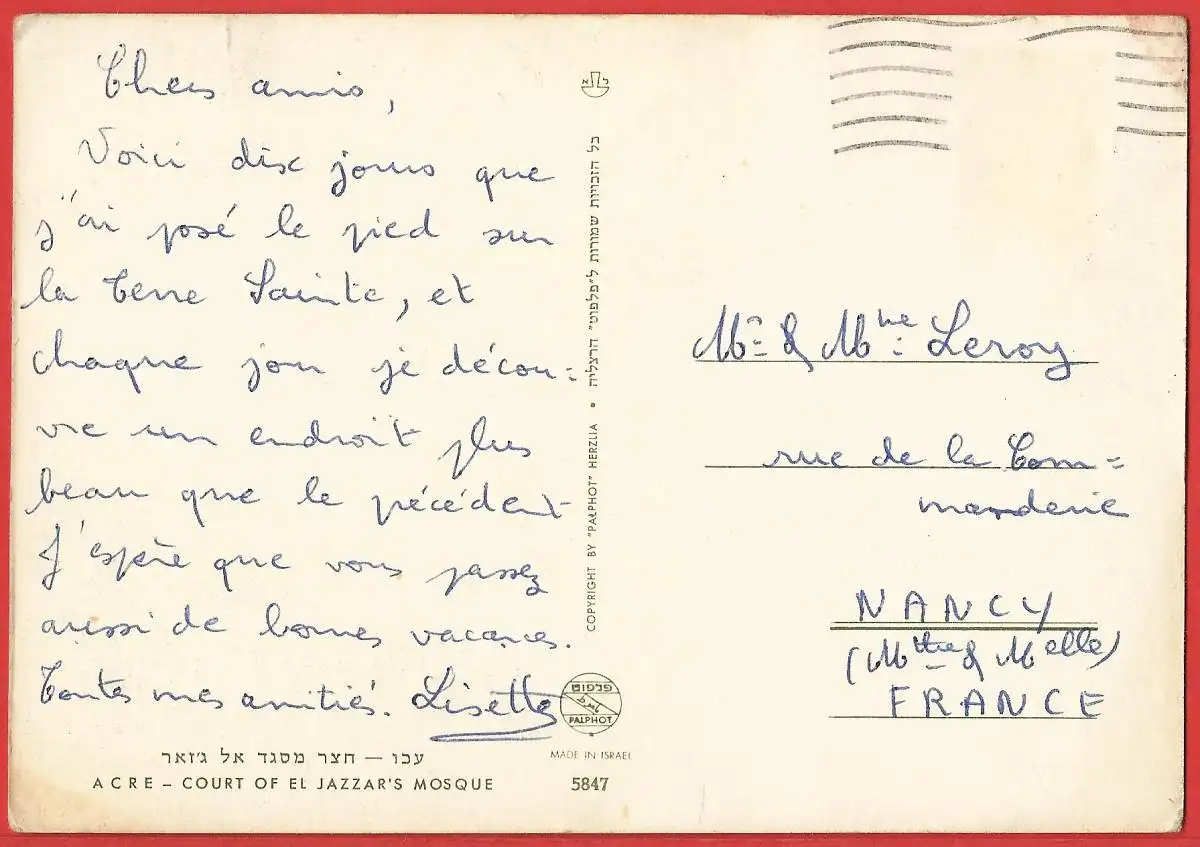 Chers amis,
Voici dix jours que
j'ai posé le pied sur
la Terre Sainte, et
chaque jour je décou=
vre un endroit plus
beau que le précédent
J'espère que vous passez
aussi de bonnes vacances.
Toutes mes amitiés. Lisette
עכו — חצר מסגד אל ג'זאר
ACRE – COURT OF EL JAZZAR'S MOSQUE
כל הזכויות שמורות ל"פלפוט" הרצליה • COPYRIGHT BY "PALPHOT" HERZLIA
פלפוט
PALPHOT
MADE IN ISRAEL
5847
Mr & Mme Leroy
rue de la Com=
manderie
NANCY
(Mthe & Melle)
FRANCE